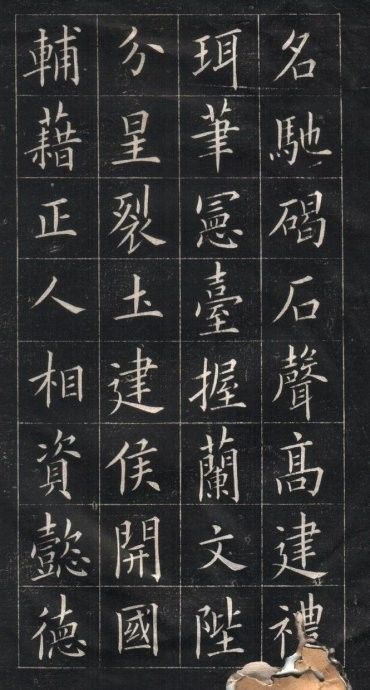 名馳碣石聲高建禮
珥筆憲臺握蘭文陛
分星裂土建侯開國
輔藉正人相資懿德